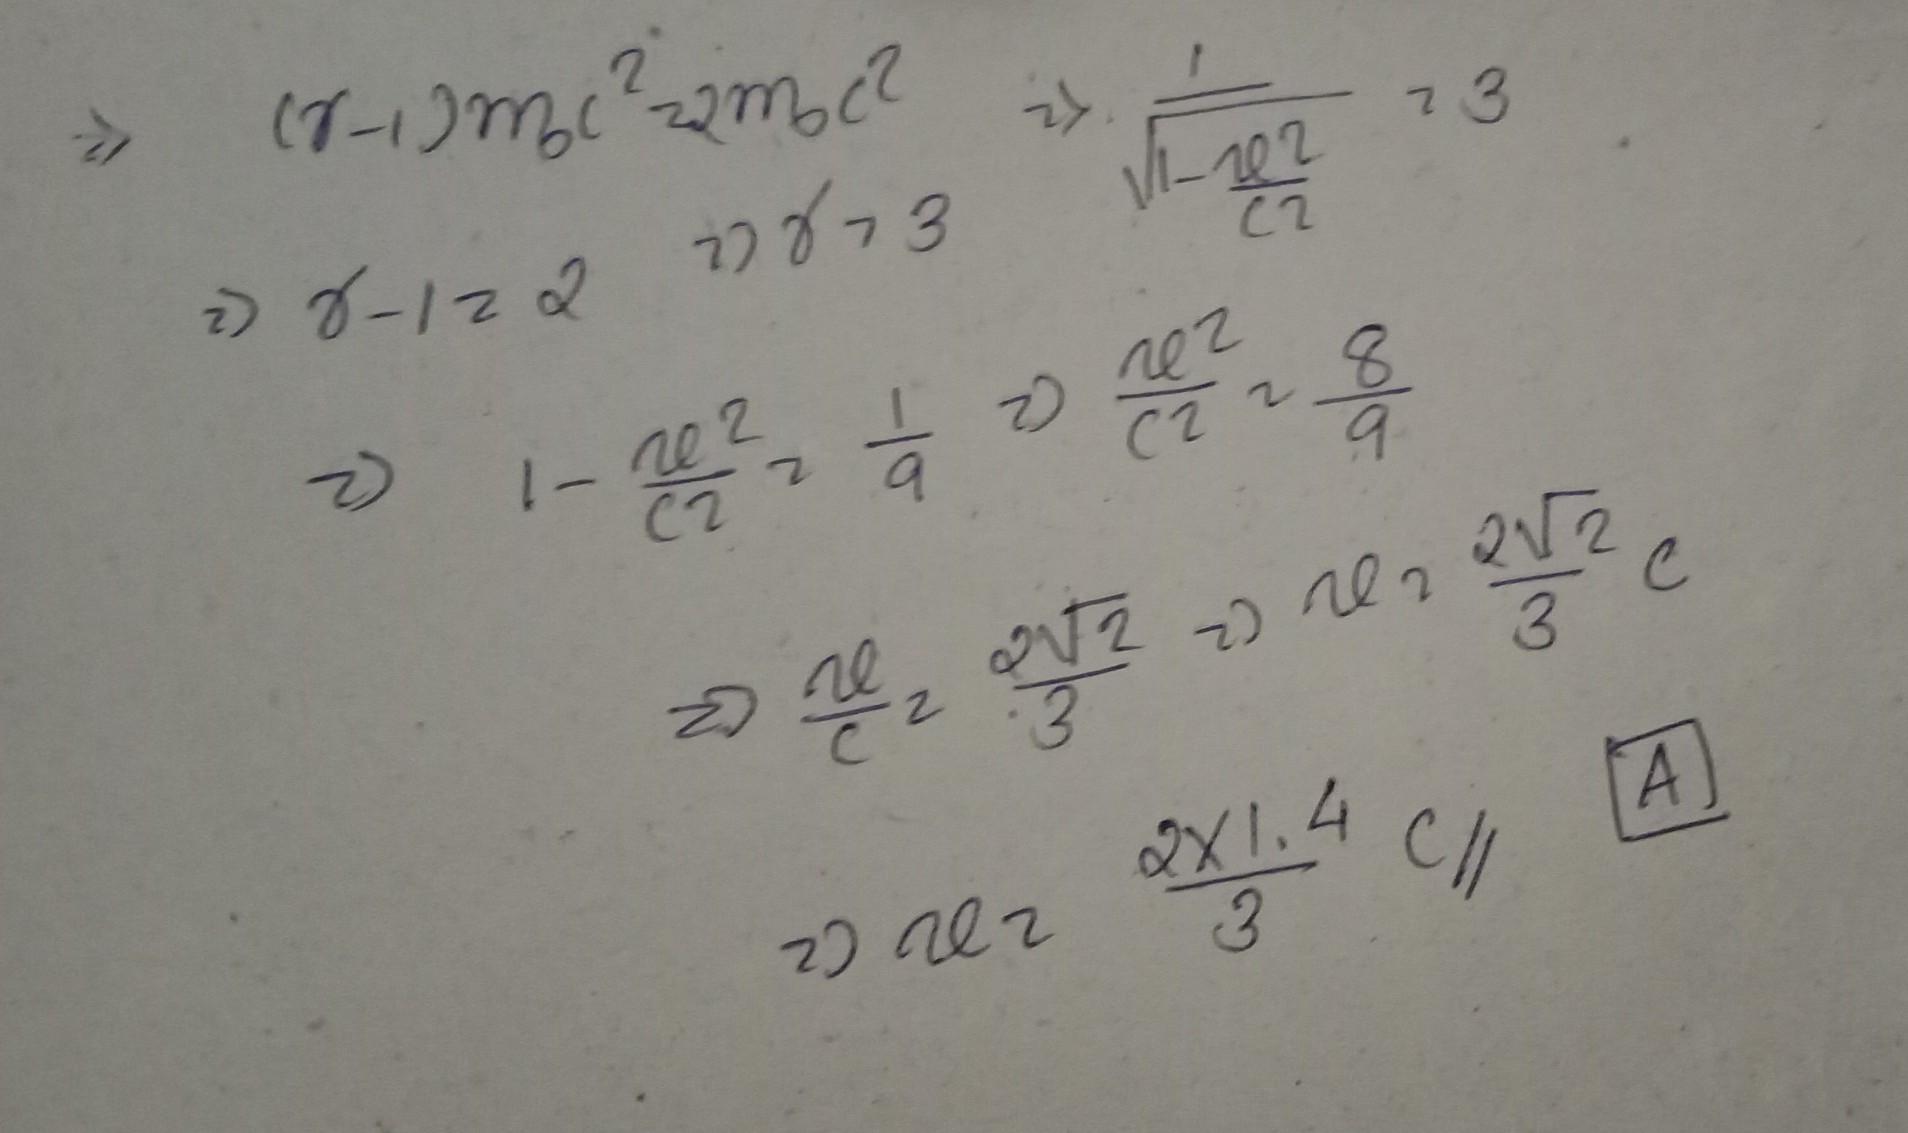 ⇒ (γ-1)m₀c² = 2m₀c² ⇒ 1/√(1 - v²/c²) = 3
⇒ γ-1 = 2 ⇒ γ = 3
⇒ 1 - v²/c² = 1/9 ⇒ v²/c² = 8/9
⇒ v/c = 2√2/3 ⇒ v = 2√2/3 c
⇒ v = 2×1.4/3 c// A